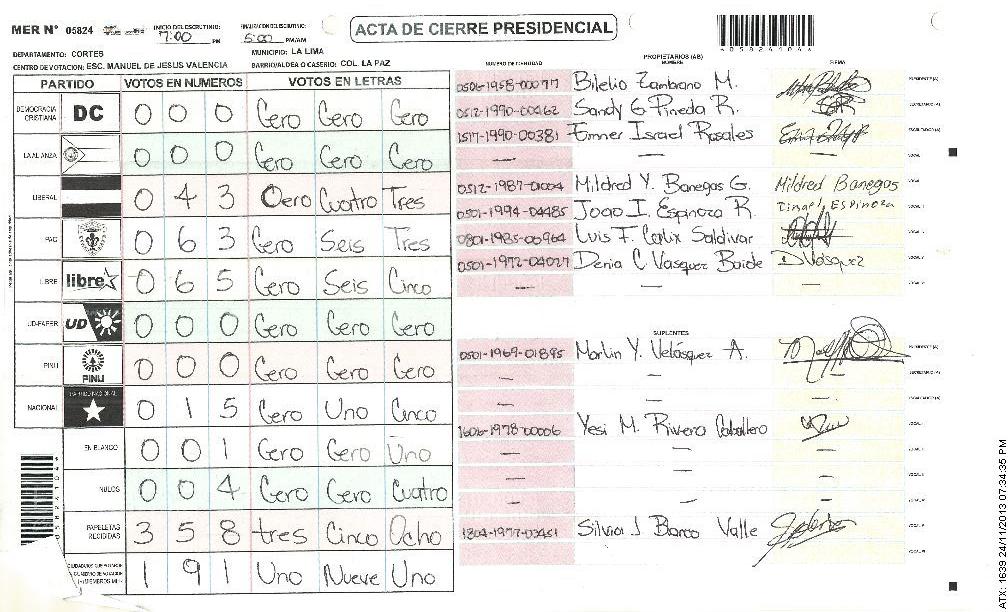 MER N° 05824
INICIO DEL ESCRUTINIO: 7:00 PM
FINALIZACION DEL ESCRUTINIO: 5:00 PM/AM
ACTA DE CIERRE PRESIDENCIAL
DEPARTAMENTO: CORTES
MUNICIPIO: LA LIMA
CENTRO DE VOTACION: ESC. MANUEL DE JESUS VALENCIA
BARRIO/ALDEA O CASERIO: COL. LA PAZ
PARTIDO VOTOS EN NUMEROS VOTOS EN LETRAS
DEMOCRACIA CRISTIANA DC 0 0 0 Cero Cero Cero
LA ALIANZA 0 0 0 Cero Cero Cero
LIBERAL 0 4 3 Cero Cuatro Tres
PAC 0 6 3 Cero Seis Tres
LIBRE libre 0 6 5 Cero Seis Cinco
UD-FAPER UD 0 0 0 Cero Cero Cero
PINU PINU 0 0 0 Cero Cero Cero
NACIONAL PARTIDO NACIONAL 0 1 5 Cero Uno Cinco
EN BLANCO 0 0 1 Cero Cero Uno
NULOS 0 0 4 Cero Cero Cuatro
PAPELETAS RECIBIDAS 3 5 8 tres Cinco Ocho
1 9 1 Uno Nueve Uno
NUMERO DE IDENTIDAD PROPIETARIOS (AS) NOMBRE FIRMA
0506-1958-00077 Bilelio Zambrano M. PRESIDENTE (A)
0512-1990-00462 Sandy G Pineda R. SECRETARIO (A)
1517-1990-00381 Emner Israel Rosales ESCRUTADOR (A)
— — — VOCAL
0512-1987-01004 Mildred Y. Banegas G. Mildred Banegas VOCAL
0501-1994-04485 Joao I. Espinoza R. Espinoza VOCAL
0801-1985-00964 Luis F. Calix Saldivar VOCAL
0501-1972-04027 Denia C Vasquez Buide D Vásquez VOCAL
— — — VOCAL
SUPLENTES
0501-1969-01895 Marlin Y. Velásquez A. PRESIDENTE (A)
— — — SECRETARIO (A)
— — — ESCRUTADOR (A)
1606-1978-00006 Yesi M. Rivera Caballero VOCAL
— — — VOCAL
— — — VOCAL
— — — VOCAL
1804-1977-03451 Silvia J Blanco Valle VOCAL
ATX: 1639 24/11/2013 07:34:35 PM